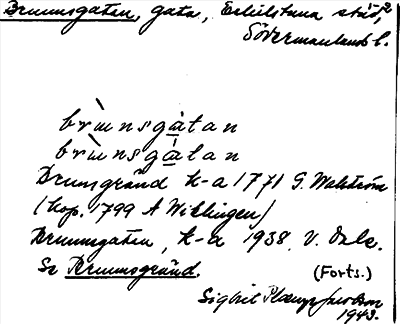 Brunnsgatan, gata, Eskilstuna stad,
Södermanlands l.
brùnsgàtan
brùnsgàtan
Brunsgränd k-a 1771 G. Walström
(kop. 1799 A Wiklingen)
Brunnsgatan, k-a 1938. V. Dale.
Se Brunnsgränd. (Forts.)
Sigbrit Plænge Jacobson
1943.